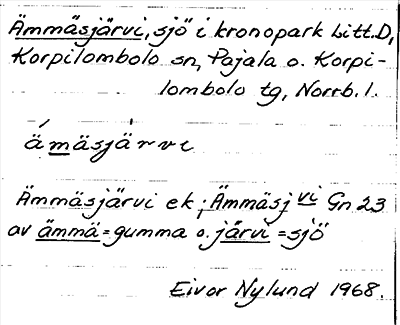 Ämmäsjärvi, sjö i kronopark Litt. D,
Korpilombolo sn, Pajala o. Korpi-
lombolo tg, Norrb. l.
ä́mäsjä́rvi
Ämmäsjärvi ek; Ämmäsj vi Gn 23
av ämmä = gumma o. järvi = sjö
Eivor Nylund 1968.